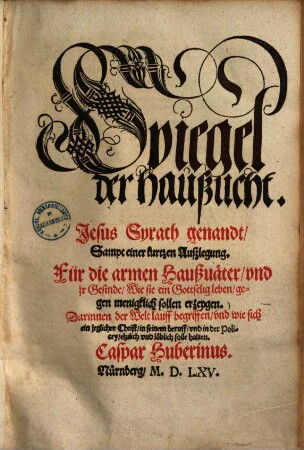 Spiegel
der Haußzucht.
Jesus Syrach genandt/
Sampt einer kurtzen Außlegung.
Für die armen Haußuäter/vnd
jr Gesinde/ Wie sie ein Gottselig leben/ ge-
gen menigklich sollen erzeygen.
Darinnen der Welt lauff begriffen/vnd wie sich
ein jeglicher Christ/in seinem beruff/vnd in der Poli-
cey/ehrlich vnd löblich solle halten.
Caspar Huberinus.
Nürnberg/ M. D. LXV.